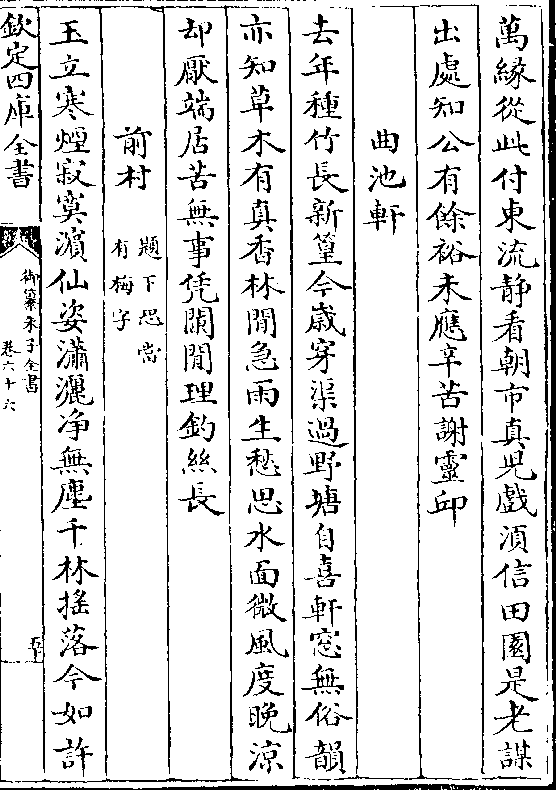 萬緣從此付東流静看朝市真兒戲湏信田園是老謀
出處知公有餘裕未應辛苦謝靈邱
曲池軒
去年種竹長新篁今歳穿渠過野塘自喜軒窓無俗韻
亦知草木有真香林間急雨生愁思水面微風度晩涼
却厭端居苦無事凭闌閒理釣絲長
前村
題下恐當
有梅字
玉立寒煙寂寞濵仙姿瀟灑净無塵千林揺落今如許
欽定四庫全書
御纂朱子全書
卷六十六